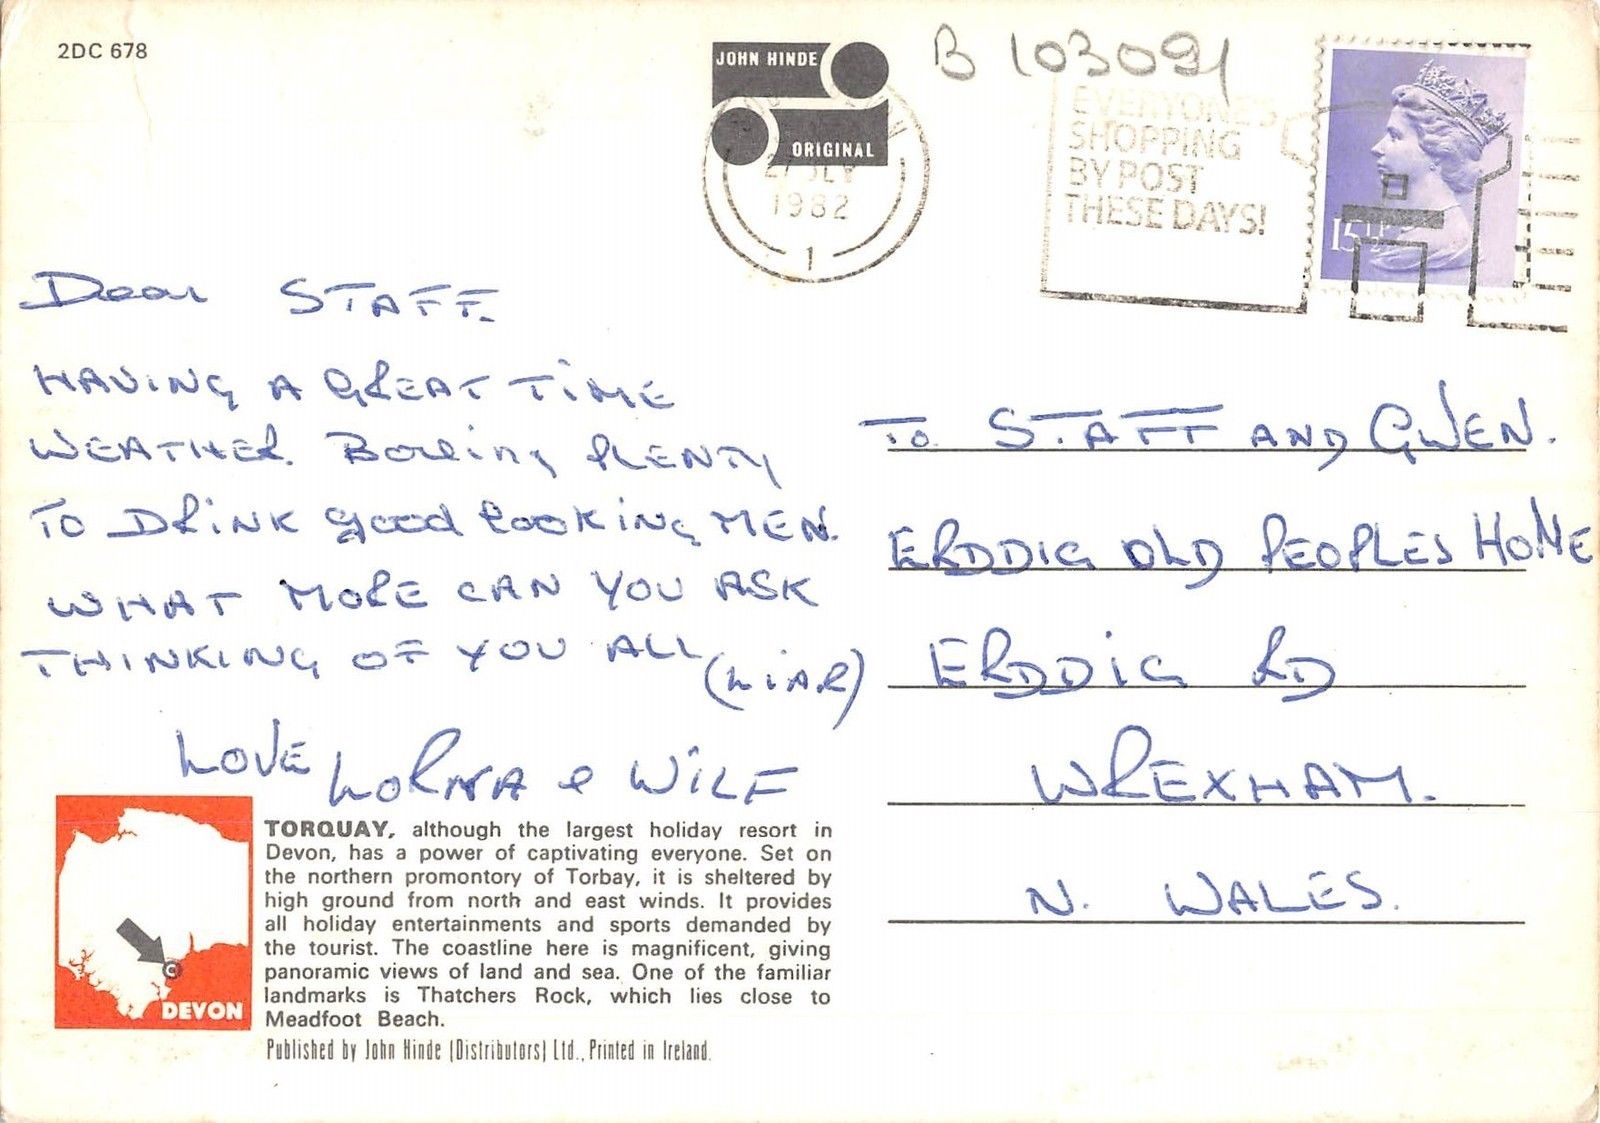 2DC 678
JOHN HINDE
ORIGINAL
B 103091
1982
1
EVERYONE'S
SHOPPING
BY POST
THESE DAYS!
15½
Dear STAFF.
HAVING A GREAT TIME
WEATHER. Boiling PLENTY
TO DRINK good looKING MEN.
WHAT MORE CAN YOU ASK
THINKING OF YOU ALL (LIAR)
LOVE LORNA & WILF
To STAFF AND GWEN.
ERDDIG OLD PEOPLES HOME
ERDDIG RD
WREXHAM.
N. WALES.
DEVON
TORQUAY, although the largest holiday resort in
Devon, has a power of captivating everyone. Set on
the northern promontory of Torbay, it is sheltered by
high ground from north and east winds. It provides
all holiday entertainments and sports demanded by
the tourist. The coastline here is magnificent, giving
panoramic views of land and sea. One of the familiar
landmarks is Thatchers Rock, which lies close to
Meadfoot Beach.
Published by John Hinde (Distributors) Ltd., Printed in Ireland.